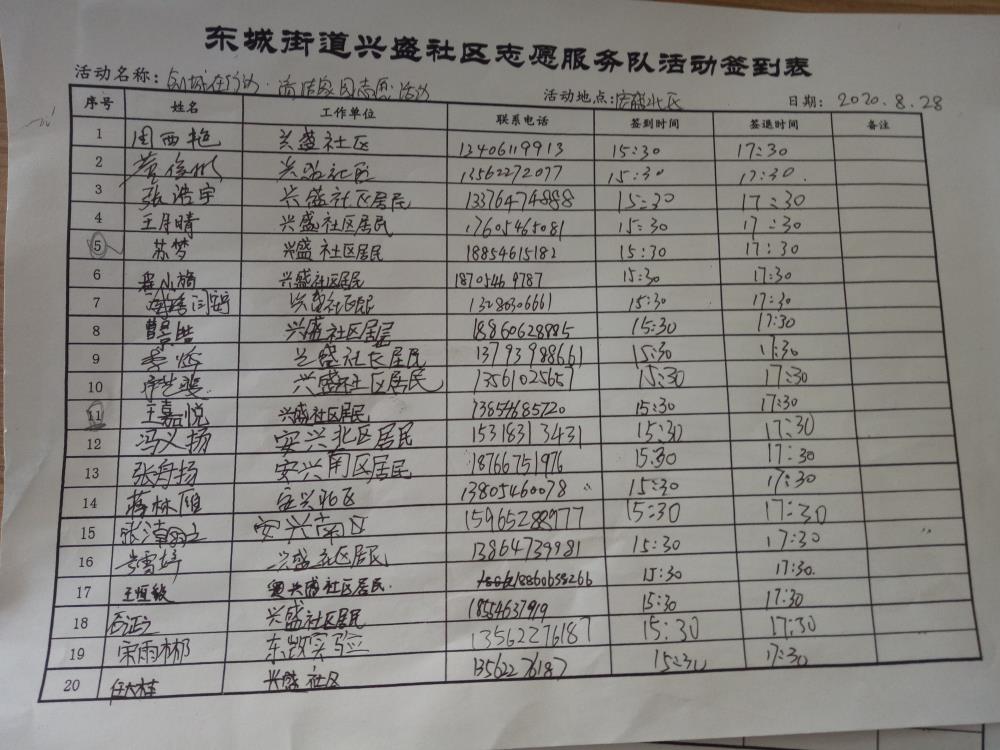 东城街道兴盛社区志愿服务队活动签到表
活动名称：创城在行动·清洁家园志愿活动 活动地点：安兴北区 日期：2020.8.28
序号 姓名 工作单位 联系电话 签到时间 签退时间 备注
1 周西艳 兴盛社区 12406119913 15:30 17:30
2 兴盛社区 13562272077 15:30 17:30.
3 张浩宇 兴盛社区居民 13376474888 15:30 17:30
4 王月晴 兴盛社区居民 17605465081 15:30 17:30
5 苏梦 兴盛社区居民 18854615182 15:30 17:30
6 兴盛社区居民 18705469787 15:30 17:30
7 兴盛社区居民 13280306661 15:30 17:30
8 兴盛社区居民 18860628885 15:30 17:30
9 兴盛社区居民 13793988661 15:30 17:30
10 兴盛社区居民 13561025651 15:30 17:30
11 王嘉悦 兴盛社区居民 13854685720 15:30 17:30
12 冯义扬 安兴北区居民 15318313431 15:30 17:30
13 张舟扬 安兴南区居民 18766751976 15:30 17:30
14 蒋林月 安兴北区 13805460078 15:30 17:30
15 安兴南区 15965288977 15:30 17:30
16 兴盛社区居民 13864739981 15:30 17:30
17 王恒敏 兴盛社区居民. 18860658266 15:30 17:30.
18 兴盛社区居民 18554637919 15:30 17:30
19 宋雨彬 东城实验 13562276187 15:30 17:30
20 任大桂 兴盛社区 13562276187 15:30 17:30